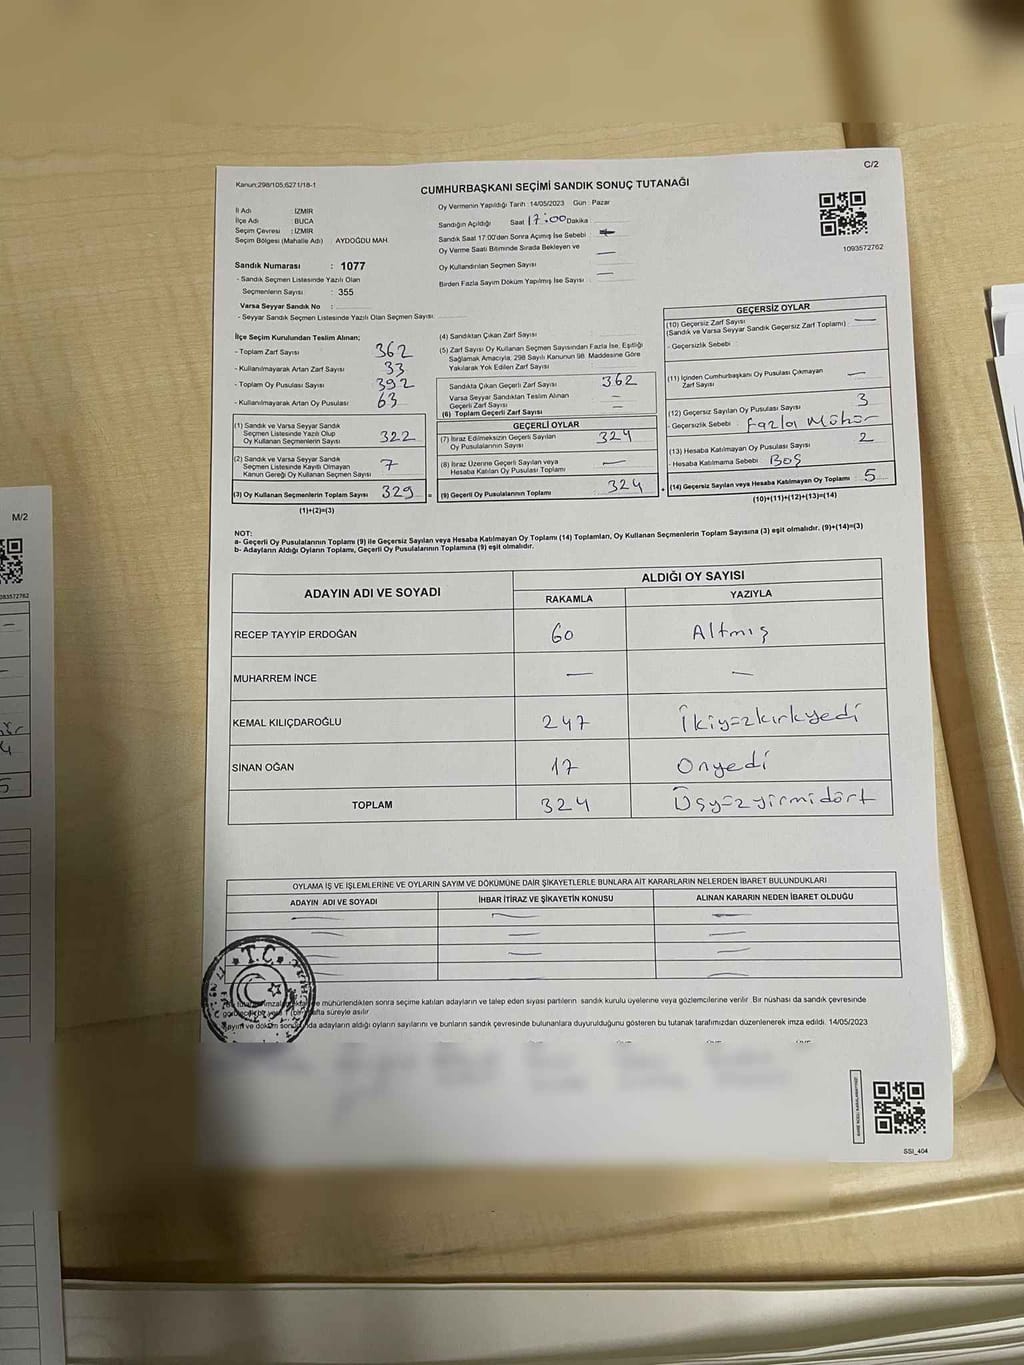 C/2
Kanun:298/105;6271/18-1
CUMHURBAŞKANI SEÇİMİ SANDIK SONUÇ TUTANAĞI
Oy Vermenin Yapıldığı Tarih :14/05/2023 Gün : Pazar
İl Adı : İZMİR
İlçe Adı : BUCA
Seçim Çevresi : İZMİR
Seçim Bölgesi (Mahalle Adı) AYDOĞDU MAH.
Sandığın Açıldığı Saat 17:00 Dakika
Sandık Saat 17:00'den Sonra Açımış İse Sebebi : —
Oy Verme Saati Bitiminde Sırada Bekleyen ve
Oy Kullandırılan Seçmen Sayısı : —
Birden Fazla Sayım Döküm Yapılmış İse Sayısı : —
1093572762
Sandık Numarası : 1077
- Sandık Seçmen Listesinde Yazılı Olan
Seçmenlerin Sayısı : 355
Varsa Seyyar Sandık No :
- Seyyar Sandık Seçmen Listesinde Yazılı Olan Seçmen Sayısı:
İlçe Seçim Kurulundan Teslim Alınan;
- Toplam Zarf Sayısı 362
- Kullanılmayarak Artan Zarf Sayısı : 33
- Toplam Oy Pusulası Sayısı : 392
- Kullanılmayarak Artan Oy Pusulası : 63
(1) Sandık ve Varsa Seyyar Sandık
Seçmen Listesinde Yazılı Olup
Oy Kullanan Seçmenlerin Sayısı : 322
(2) Sandık ve Varsa Seyyar Sandık
Seçmen Listesinde Kayıtlı Olmayan
Kanun Gereği Oy Kullanan Seçmen Sayısı : 7
(3) Oy Kullanan Seçmenlerin Toplam Sayısı : 329 =
(1)+(2)=(3)
(4) Sandıktan Çıkan Zarf Sayısı
(5) Zarf Sayısı Oy Kullanan Seçmen Sayısından Fazla İse, Eşitliği
Sağlamak Amacıyla, 298 Sayılı Kanunun 98. Maddesine Göre
Yakılarak Yok Edilen Zarf Sayısı
Sandıkta Çıkan Geçerli Zarf Sayısı : 362
Varsa Seyyar Sandıktan Teslim Alınan
Geçerli Zarf Sayısı : —
(6) Toplam Geçerli Zarf Sayısı : —
GEÇERLİ OYLAR
(7) İtiraz Edilmeksizin Geçerli Sayılan
Oy Pusulalarının Sayısı : 324
(8) İtiraz Üzerine Geçerli Sayılan veya
Hesaba Katılan Oy Pusulası Toplamı : —
(9) Geçerli Oy Pusulalarının Toplamı : 324 +
GEÇERSİZ OYLAR
(10) Geçersiz Zarf Sayısı
(Sandık ve Varsa Seyyar Sandık Geçersiz Zarf Toplamı) : —
- Geçersizlik Sebebi :
(11) İçinden Cumhurbaşkanı Oy Pusulası Çıkmayan
Zarf Sayısı : —
(12) Geçersiz Sayılan Oy Pusulası Sayısı : 3
- Geçersizlik Sebebi : Fazla Mühür
(13) Hesaba Katılmayan Oy Pusulası Sayısı : 2
- Hesaba Katılmama Sebebi : Boş
(14) Geçersiz Sayılan veya Hesaba Katılmayan Oy Toplamı : 5
(10)+(11)+(12)+(13)=(14)
NOT:
a- Geçerli Oy Pusulalarının Toplamı (9) ile Geçersiz Sayılan veya Hesaba Katılmayan Oy Toplamı (14) Toplamları, Oy Kullanan Seçmenlerin Toplam Sayısına (3) eşit olmalıdır. (9)+(14)=(3)
b- Adayların Aldığı Oyların Toplamı, Geçerli Oy Pusulalarının Toplamına (9) eşit olmalıdır.
ADAYIN ADI VE SOYADI
ALDIĞI OY SAYISI
RAKAMLA YAZIYLA
RECEP TAYYİP ERDOĞAN 60 Altmış
MUHARREM İNCE — —
KEMAL KILIÇDAROĞLU 247 İkiyüzkırkyedi
SİNAN OĞAN 17 Onyedi
TOPLAM 324 Üçyüzyirmidört
OYLAMA İŞ VE İŞLEMLERİNE VE OYLARIN SAYIM VE DÖKÜMÜNE DAİR ŞİKAYETLERLE BUNLARA AİT KARARLARIN NELERDEN İBARET BULUNDUKLARI
ADAYIN ADI VE SOYADI İHBAR İTİRAZ VE ŞİKAYETİN KONUSU ALINAN KARARIN NEDEN İBARET OLDUĞU
T.C.
mühürlendikten sonra seçime katılan adayların ve talep eden siyasi partilerin sandık kurulu üyelerine veya gözlemcilerine verilir. Bir nüshası da sandık çevresinde
süreyle asılır
Sayım ve döküm adayların aldığı oyların sayılarını ve bunların sandık çevresinde bulunanlara duyurulduğunu gösteren bu tutanak tarafımızdan düzenlenerek imza edildi. 14/05/2023
SSI_404
M/2